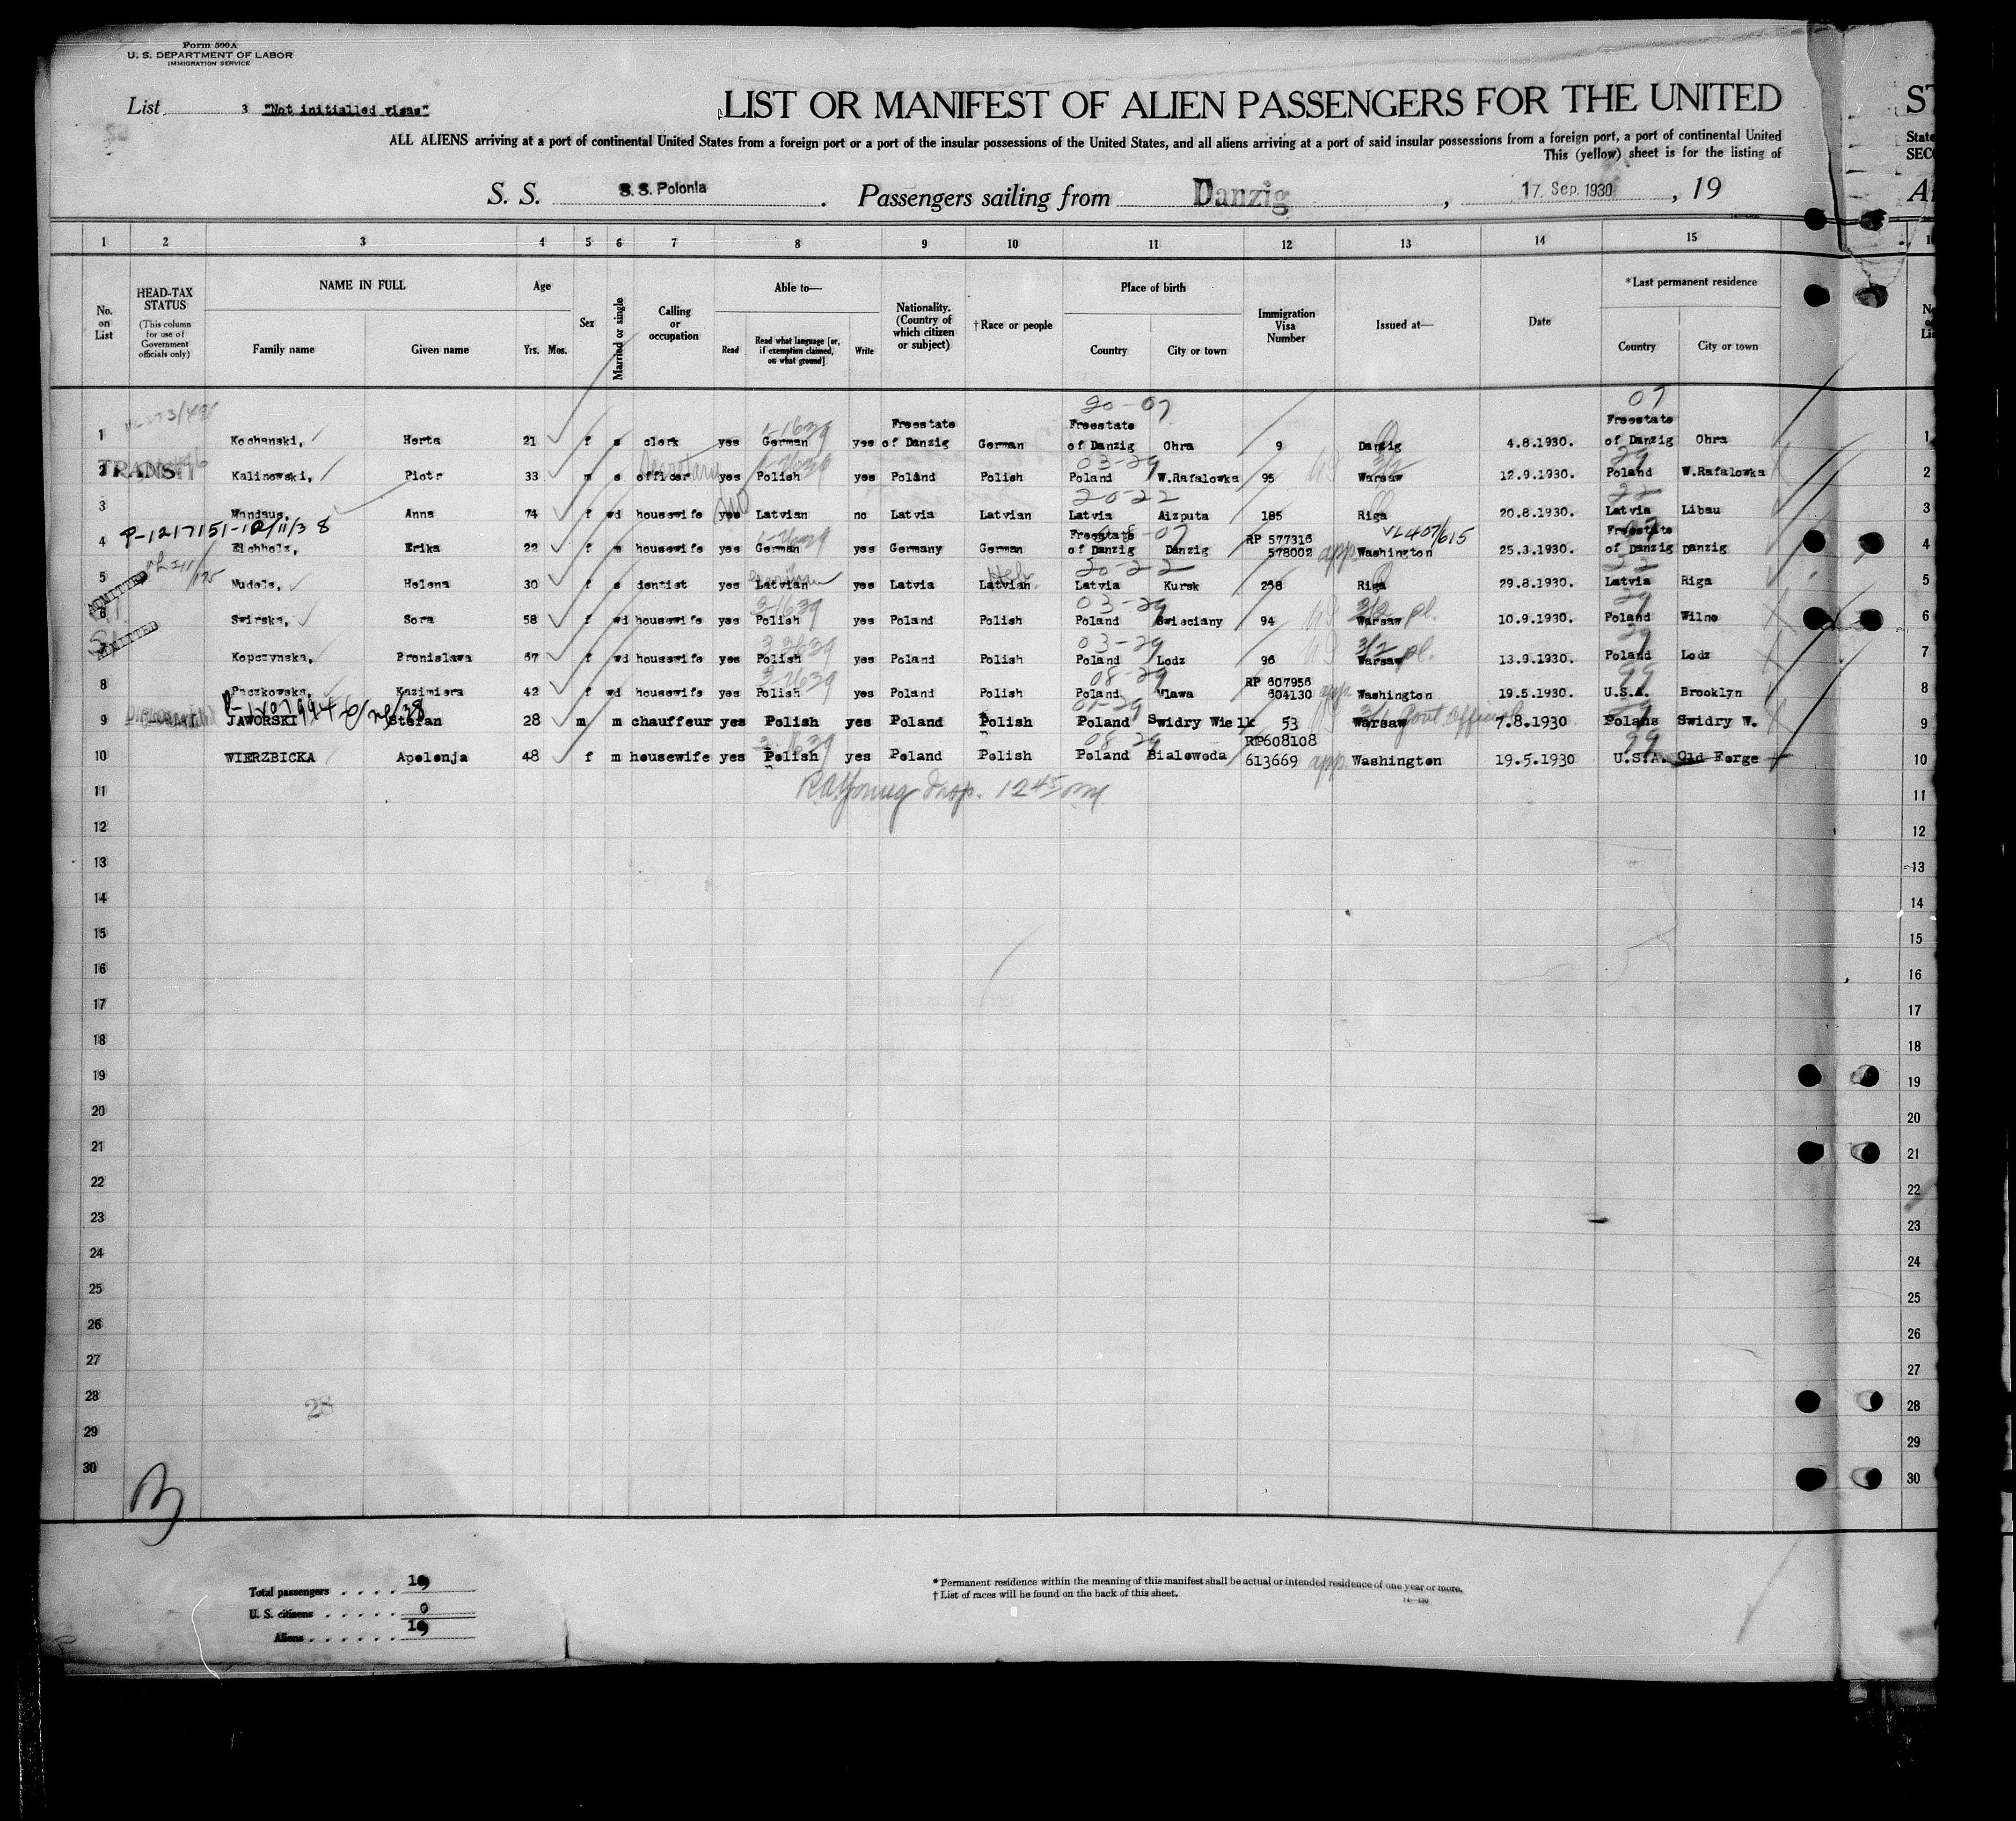 Form 500A
U. S. DEPARTMENT OF LABOR
IMMIGRATION SERVICE
List 3 "Not initialled visas"
LIST OR MANIFEST OF ALIEN PASSENGERS FOR THE UNITED
ALL ALIENS arriving at a port of continental United States from a foreign port or a port of the insular possessions of the United States, and all aliens arriving at a port of said insular possessions from a foreign port, a port of continental United
This (yellow) sheet is for the listing of
S. S. S. S. Polonia . Passengers sailing from Danzig , 17. Sep. 1930 , 19
1 2 3 4 5 6 7 8 9 10 11 12 13 14 15
No. on List
HEAD-TAX STATUS
(This column for use of Government officials only)
NAME IN FULL
Family name Given name
Age
Yrs. Mos.
Sex
Married or single
Calling or occupation
Able to—
Read Read what language [or, if exemption claimed, on what ground] Write
Nationality. (Country of which citizen or subject)
†Race or people
Place of birth
Country City or town
Immigration Visa Number
Issued at—
Date
*Last permanent residence
Country City or town
20-07 07
1 Kochanski, Herta 21 f s clerk yes German yes Freestate of Danzig German Freestate of Danzig Ohra 9 Danzig 4.8.1930. Freestate of Danzig Ohra 1
TRANSIT Secretary 03-29 3/2 29
2 Kalinowski, Piotr 33 m s officer yes Polish yes Poland Polish Poland W.Rafalowka 95 Warsaw 12.9.1930. Poland W.Rafalowka 2
20-22 22
3 Mandaus, Anna 74 f wd housewife yes no Latvian no Latvia Latvian Latvia Aizputa 185 Riga 20.8.1930. Latvia Libau 3
P-1217151-10/11/38 VL407/615
4 Eichholz, Erika 22 f m housewife yes German yes Germany German Freestate of Danzig Danzig RP 577316 578002 app. Washington 25.3.1930. Freestate of Danzig Danzig 4
German Heb. 20-22 22
5 Mudels, Helena 30 f s dentist yes Latvian yes Latvia Latvian Latvia Kursk 268 Riga 29.8.1930. Latvia Riga 5
ADMITTED
03-29 3/2 pl. 29
6 Swirska, Sora 58 f wd housewife yes Polish yes Poland Polish Poland Swieciany 94 Warsaw 10.9.1930. Poland Wilno 6
ADMITTED
03-29 3/2 pl. 29
Kopczynska, Bronislawa 67 f wd housewife yes Polish yes Poland Polish Poland Lodz 96 Warsaw 13.9.1930. Poland Lodz 7
08-29 99
8 Paczkowska, Kazimiera 42 f wd housewife yes Polish yes Poland Polish Poland Mlawa RP 607956 604130 app. Washington 19.5.1930. U.S.A. Brooklyn 8
Govt. Official
9 JAWORSKI Stefan 28 m m chauffeur yes Polish yes Poland Polish Poland Swidry Wielk 53 Warsaw 7.8.1930 Polans Swidry W. 9
08-29 99
10 WIERZBICKA Apolonja 48 f m housewife yes Polish yes Poland Polish Poland Bialowoda RP608108 613669 app. Washington 19.5.1930 U.S.A. Old Forge 10
11 Insp. 1245 pm 11
12 12
13 13
14 14
15 15
16 16
17 17
18 18
19 19
20 20
21 21
22 22
23 23
24 24
25 25
26 26
27 27
28 28 28
29 29
30 30
Total passengers . . . . 10
U. S. citizens . . . . . 0
Aliens . . . . . . 10
* Permanent residence within the meaning of this manifest shall be actual or intended residence of one year or more.
† List of races will be found on the back of this sheet.